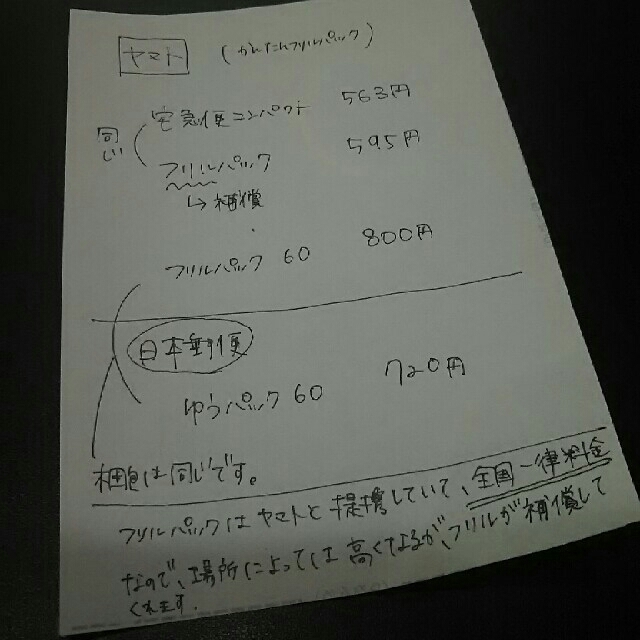 ヤマト (かんたんフリルパック)
宅急便コンパクト 563円
同じい
フリルパック 595円
↳補償
フリルパック 60 800円
日本郵便
ゆうパック 60 720円
梱包は同じです。
フリルパックはヤマトと提携していて、全国一律料金
なので、場所によっては高くなるが、フリルが補償して
くれます.